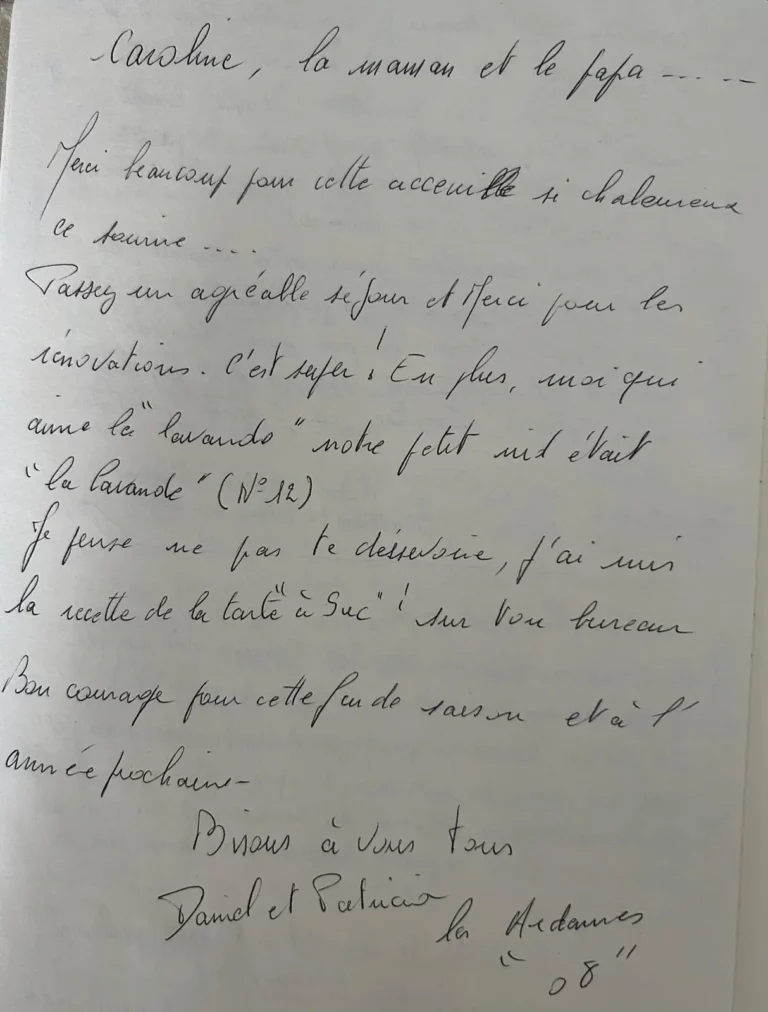 Caroline, la maman et le papa ..... 
Merci beaucoup pour cette accueil si chaleureux
ce sourire ....
Passez un agréable séjour et Merci pour les
rénovations. C'est super ! En plus, moi qui
aime la "lavande" notre petit nid était
"la lavande" (N° 12)
Je pense ne pas te déservoire, j'ai mis
la recette de la tarte "à Suc" ! sur ton bureau
Bon courage pour cette fin de saison et à l'
année prochaine -
Bisous à vous tous
Daniel et Patricia
les Ardannes
"08"